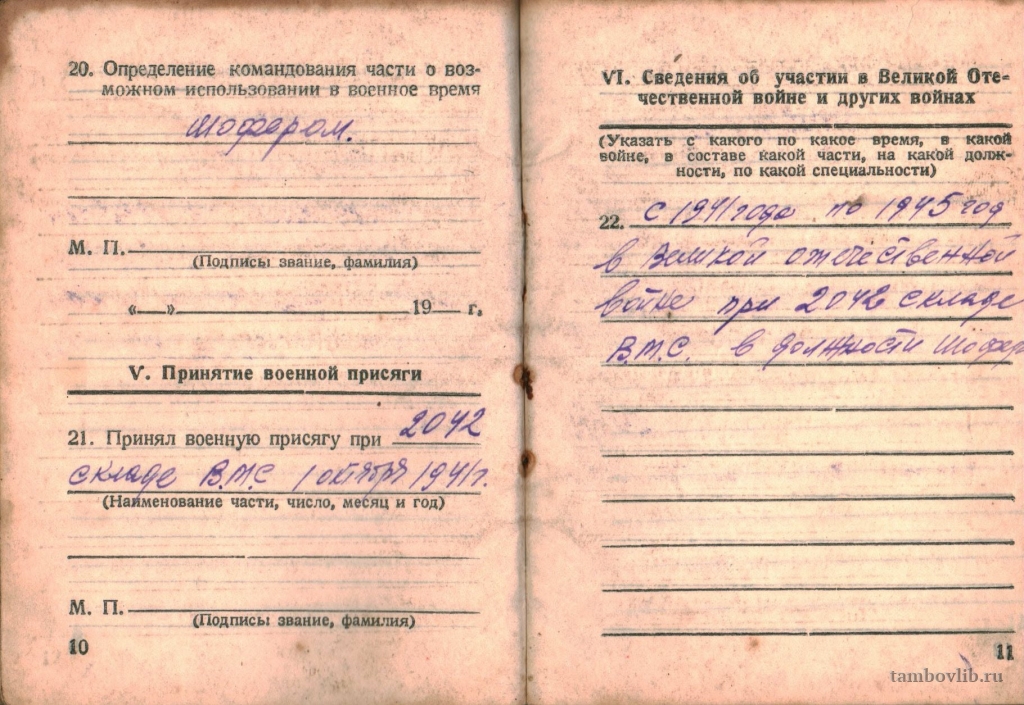 20. Определение командования части о воз-
можном использовании в военное время
шофером.
М. П.
(Подпись: звание, фамилия)
«—» 19— г.
V. Принятие военной присяги
21. Принял военную присягу при 2042
складе В.М.С 1 октября 1941г.
(Наименование части, число, месяц и год)
М. П.
(Подпись: звание, фамилия)
10
VI. Сведения об участии в Великой Оте-
чественной войне и других войнах
(Указать с какого по какое время, в какой
войне, в составе какой части, на какой долж-
ности, по какой специальности)
22. с 1941 года по 1945 год
в Великой отечественной
войне при 2042 складе
В.М.С. в должности шофер
11
tambovlib.ru